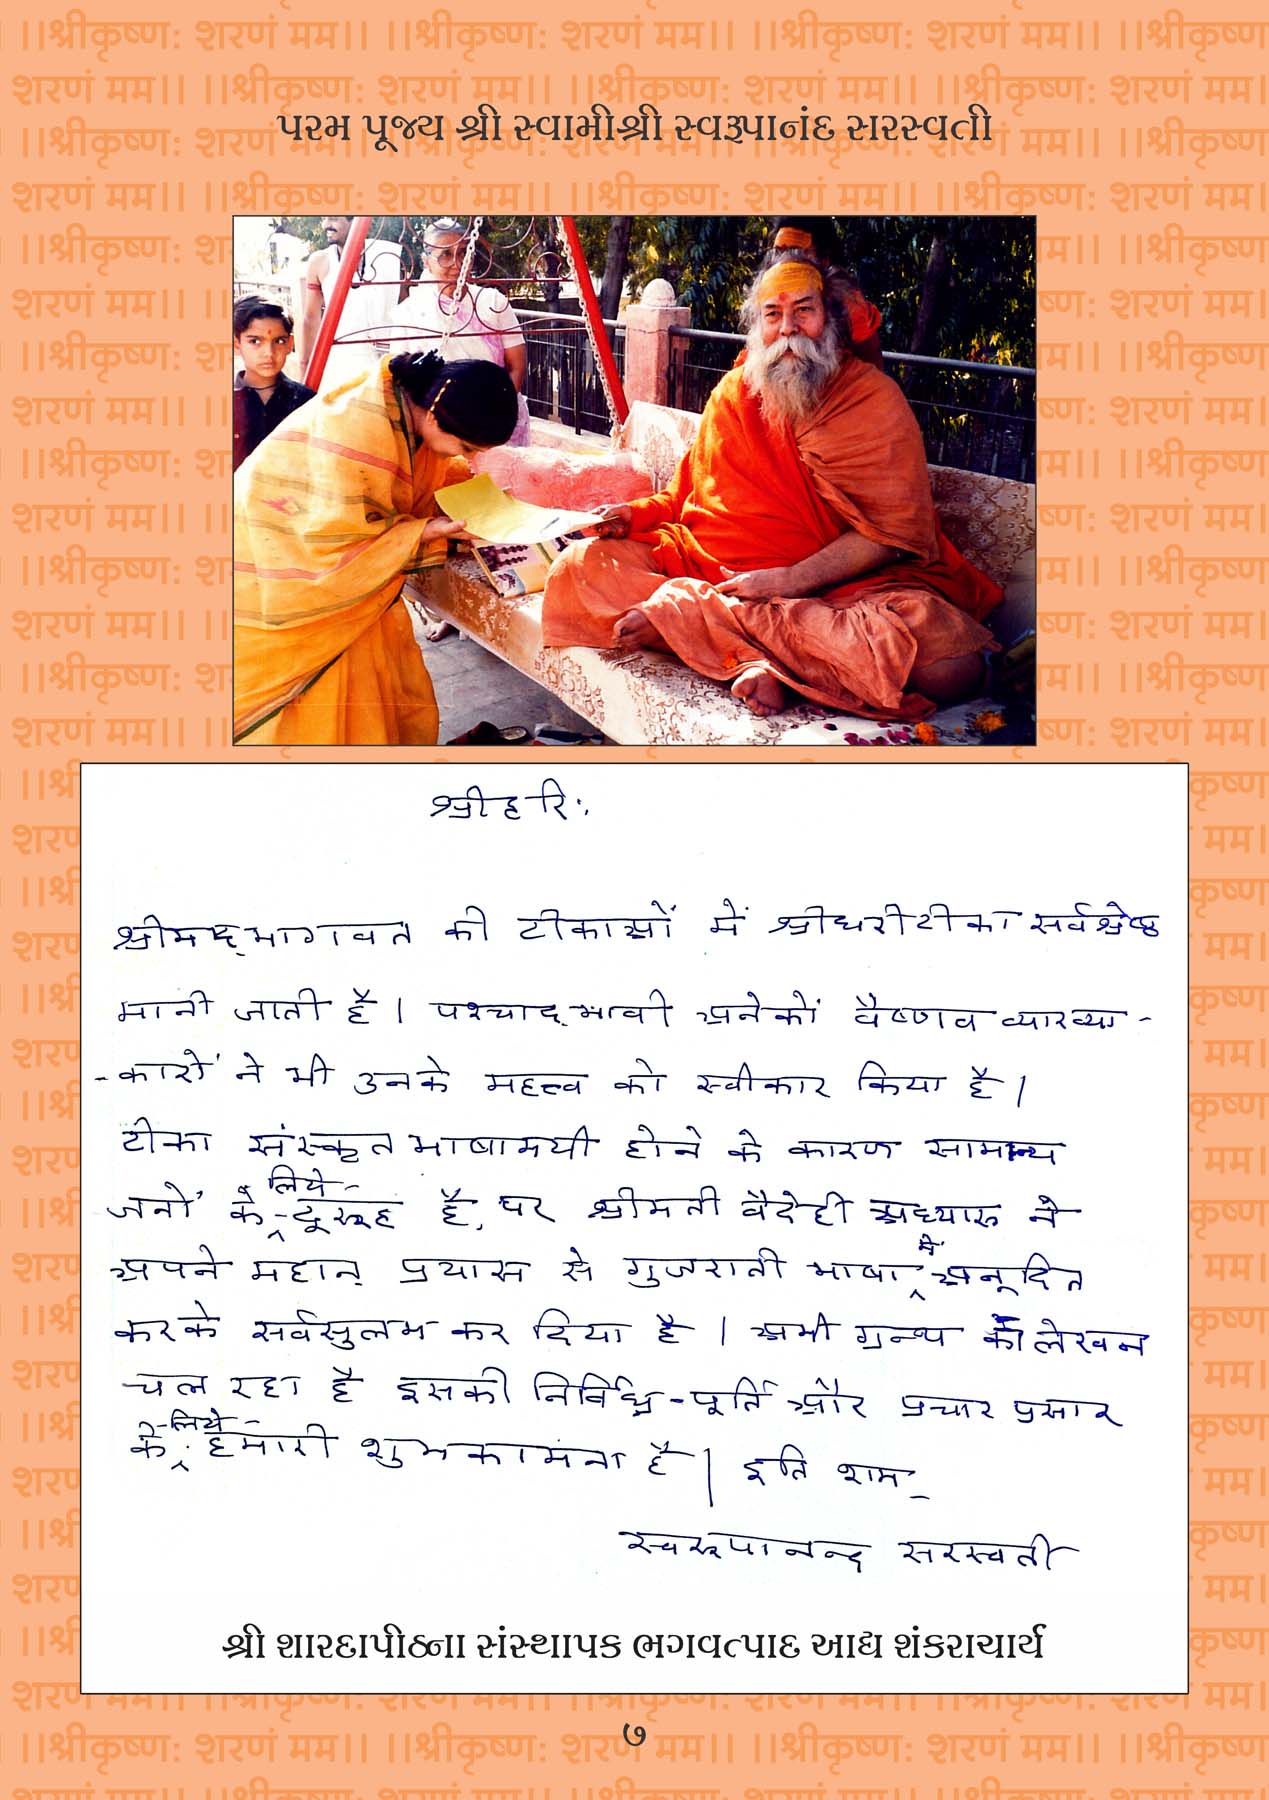 પરમ પૂજ્ય શ્રી સ્વામીશ્રી સ્વરૂપાનંદ સરસ્વતી
श्रीहरिः
श्रीमद्भागवत की टीकाओं में श्रीधरीटीका सर्वश्रेष्ठ
मानी जाती है । पश्चाद्भावी अनेकों वैष्णव व्याख्या-
-कारों ने भी उनके महत्त्व को स्वीकार किया है ।
टीका संस्कृतभाषामयी होने के कारण सामान्य
जनों के लिये दुरूह है, पर श्रीमती वैदेही अध्यारू ने
अपने महान् प्रयास से गुजराती भाषा में अनूदित
करके सर्वसुलभ कर दिया है । अभी ग्रन्थ का लेखन
चल रहा है इसकी निर्विघ्न-पूर्ति और प्रचार प्रसार
के लिये हमारी शुभकामना है । इति शम्
स्वरूपानन्द सरस्वती
શ્રી શારદાપીઠના સંસ્થાપક ભગવત્પાદ આદ્ય શંકરાચાર્ય
૭